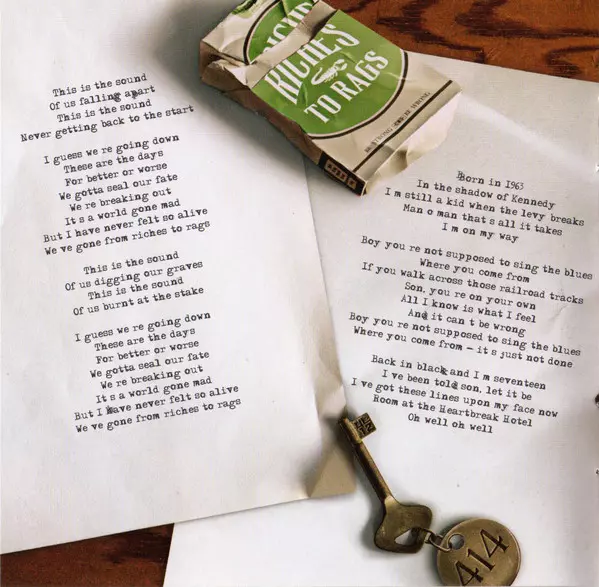 This is the sound
Of us falling apart
This is the sound
Never getting back to the start
I guess we re going down
These are the days
For better or worse
We gotta seal our fate
We re breaking out
It s a world gone mad
But I have never felt so alive
We ve gone from riches to rags
This is the sound
Of us digging our graves
This is the sound
Of us burnt at the stake
I guess we re going down
These are the days
For better or worse
We gotta seal our fate
We re breaking out
It s a world gone mad
But I have never felt so alive
We ve gone from riches to rags
RICHES
TO RAGS
Born in 1963
In the shadow of Kennedy
I m still a kid when the levy breaks
Man o man that s all it takes
I m on my way
Boy you re not supposed to sing the blues
Where you come from
If you walk across those railroad tracks
Son, you re on your own
All I know is what I feel
And it can t be wrong
Boy you re not supposed to sing the blues
Where you come from - it s just not done
Back in black and I m seventeen
I ve been told son, let it be
I ve got these lines upon my face now
Room at the Heartbreak Hotel
Oh well oh well
414